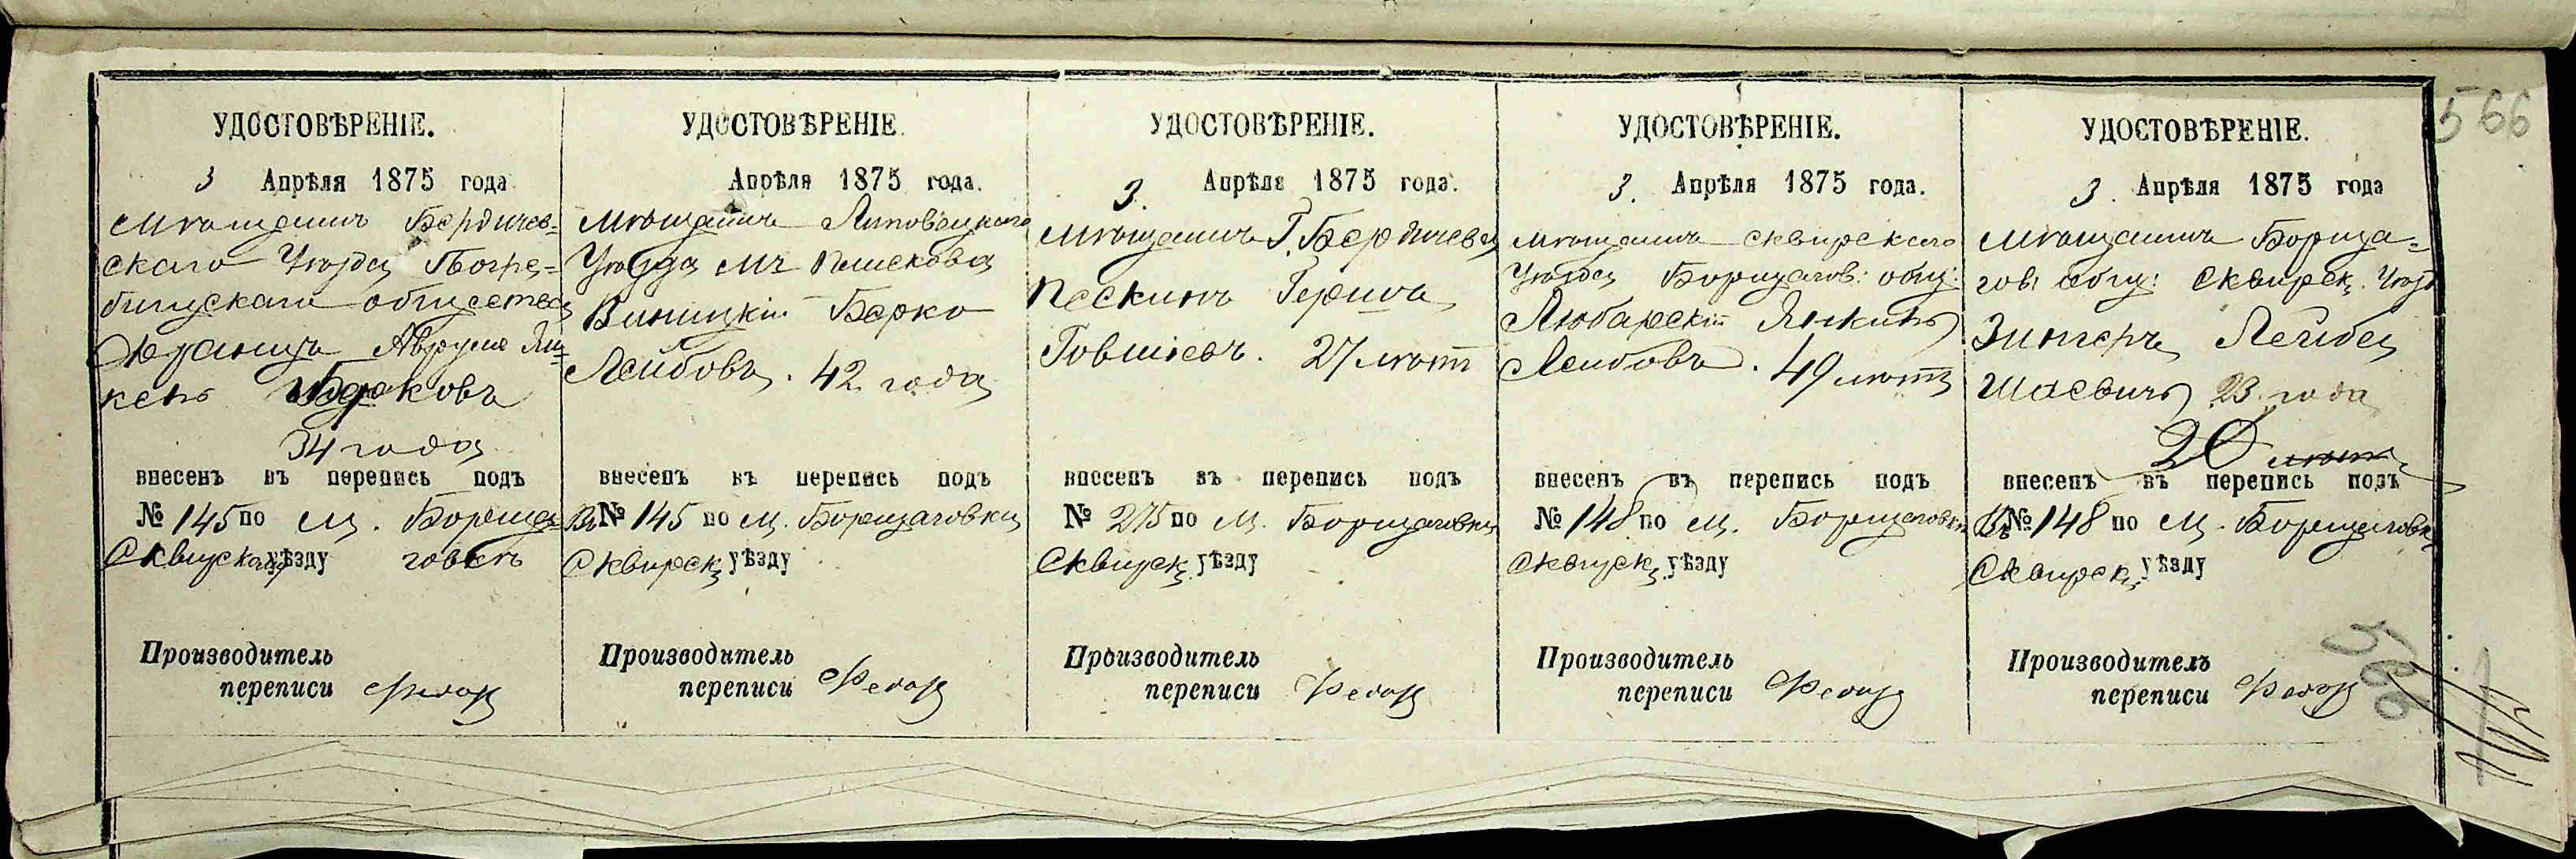 566
УДОСТОВѢРЕНІЕ.
3 Апрѣля 1875 года
Мѣщанинъ Бердичев-
скаго Уѣзда Погре-
бищскаго общества
Авруме Ян-
кель Берковъ
34 года
внесенъ въ перепись подъ
№ 145 по м. Борща
Сквирскаго уѣзду говкѣ
Производитель
переписи
УДОСТОВѢРЕНІЕ.
Апрѣля 1875 года.
Мѣщанинъ Липовецкаго
Уѣзда мч Пискова
Виницкій Берко
Лейбовъ. 42 года
внесенъ въ перепись подъ
В № 145 по м. Борщаговки
Сквирск уѣзду
Производитель
переписи
УДОСТОВѢРЕНІЕ.
3. Апрѣля 1875 года.
Мѣщанинъ Г. Бердичева
Пескинъ Гершъ
Говшіевъ. 27 лѣтъ
внесенъ въ перепись подъ
№ 275 по м. Борщаговки
Сквирск уѣзду
Производитель
переписи
УДОСТОВѢРЕНІЕ.
3. Апрѣля 1875 года.
Мѣщанинъ Сквирскаго
Уѣзда Борщагов: общ:
Любарскій Янкель
Лейбовъ. 49 лѣтъ
внесенъ въ перепись подъ
№ 148 по м. Борщаговки
Сквирск уѣзду
Производитель
переписи
УДОСТОВѢРЕНІЕ.
3. Апрѣля 1875 года
Мѣщанинъ Борща-
гов: общ: Сквирск. Уѣзд
Зингеръ Лейба
Шаевичъ 23 года
20 лѣтъ
внесенъ въ перепись подъ
В № 148 по м. Борщаговки
Сквирск. уѣзду
Производитель
переписи
566